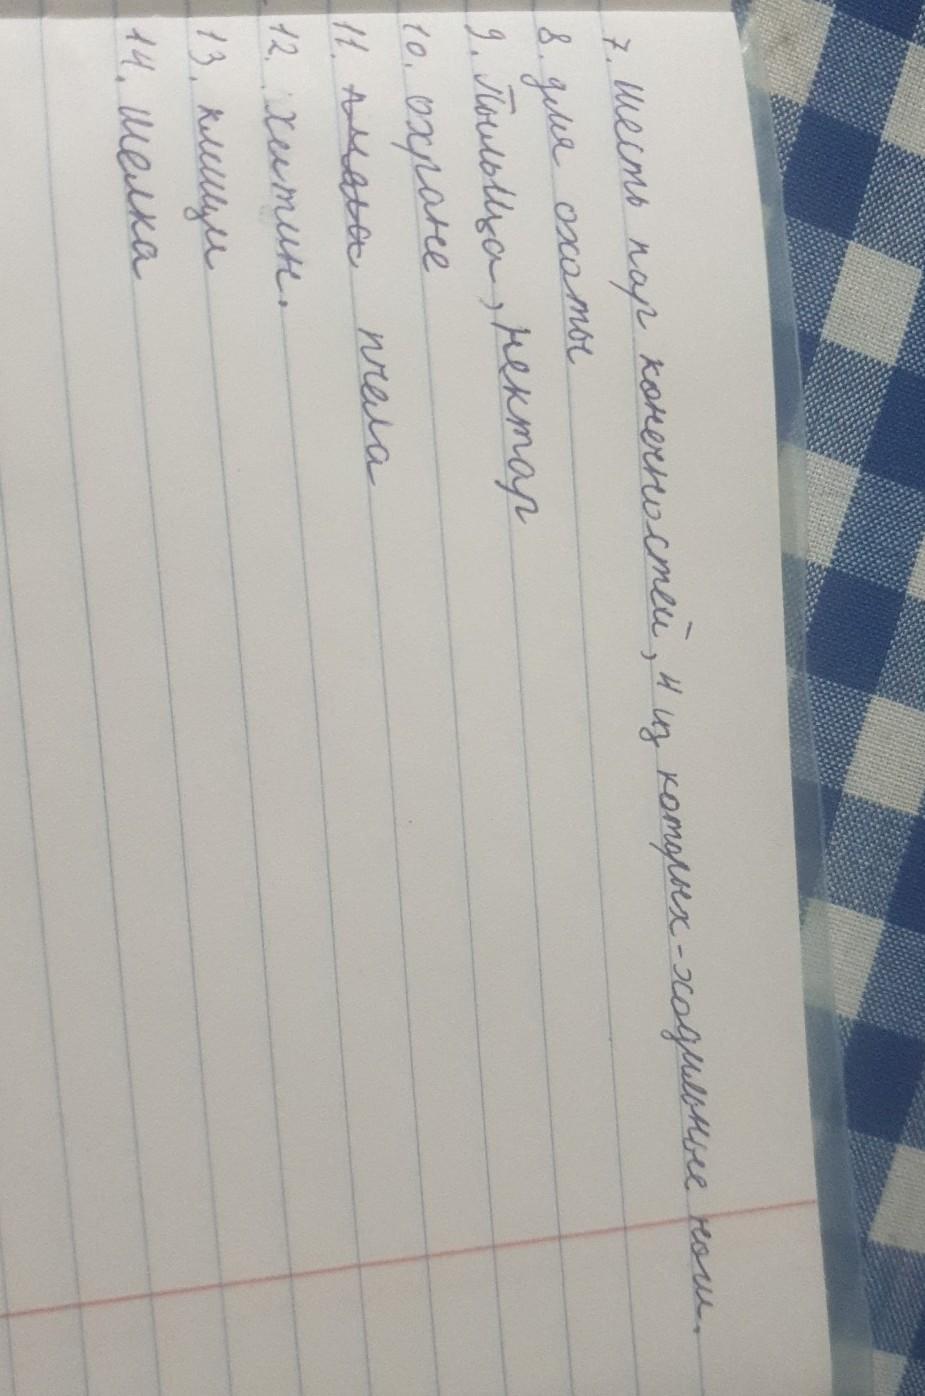 7. Шесть пар конечностей, 4 из которых - ходильные ноги.
8. для охоты
9. Пыльца, нектар
10. охране
11. пчела
12. хитин.
13. клещи
14. Шелка